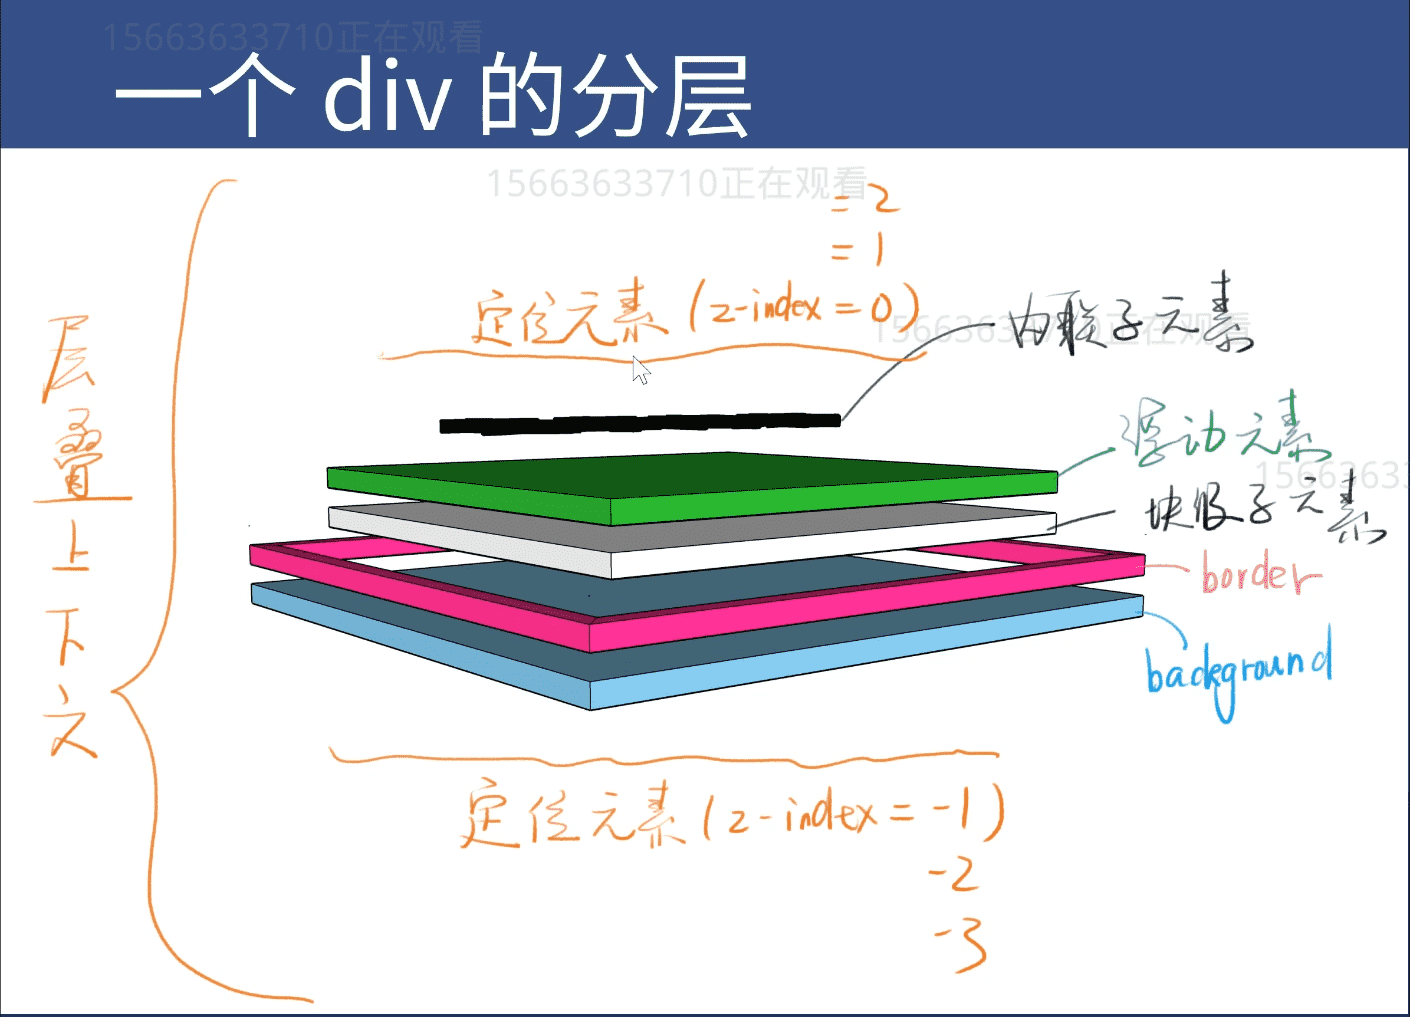 15663633710正在观看
一个 div 的分层
15663633710正在观看
= 2
= 1
定位元素 (z-index = 0)
15663633710正在观看
内联子元素
浮动元素
15663633
块级子元素
border
background
层叠上下文
定位元素 (z-index = -1)
-2
-3